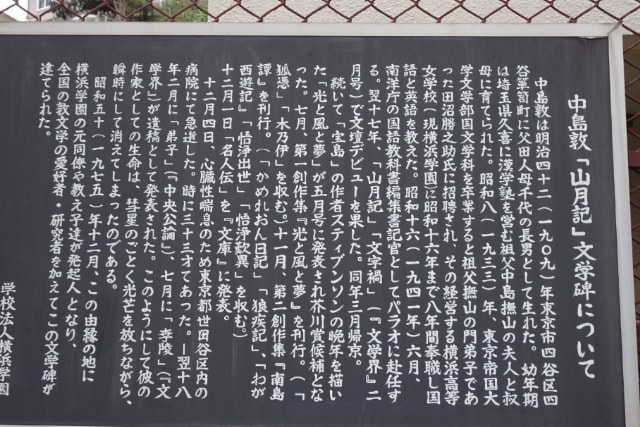 中島敦「山月記」文学碑について
中島敦は明治四十二(一九〇九)年東京市四谷区四
谷箪笥町に父田人母千代の長男として生れた。幼年期
は埼玉県久喜に漢学塾を営む祖父中島撫山の夫人と叔
母に育てられた。昭和八(一九三三)年、東京帝国大
学文学部国文学科を卒業すると祖父撫山の門弟子であ
った田沼勝之助氏に招聘され、その経営する横浜高等
女学校(現横浜学園)に昭和十六年まで八年間奉職し国
語と英語を教えた。昭和十六(一九四一)年六月、
南洋庁の国語教科書編集書記官としてパラオに赴任す
る。翌十七年、「山月記」「文字禍」(『文学界』二
月号)で文壇デビューを果した。同年三月帰京。
続いて「宝島」の作者スティブンソンの晩年を描い
た「光と風と夢」が五月号に発表され芥川賞候補とな
った。七月、第一創作集『光と風と夢』を刊行。(「
狐憑」「木乃伊」を収む)十一月、第二創作集『南島
譚』を刊行。(「かめれおん日記」「狼疾記」、「わが
西遊記」「悟浄出世」「悟浄歎異」を収む)
十二月一日「名人伝」を『文庫』に発表。
十二月四日、心臓性喘息のため東京都世田谷区内の
病院にて急逝した。時に三十三才であった。―翌十八
年二月に「弟子」(『中央公論』)、七月に「李陵」(『文
学界』)が遺稿として発表された。このようにして彼の
作家としての生命は、彗星のごとく光芒を放ちながら、
瞬時にして消えてしまったのである。
昭和五十(一九七五)年十二月、この由縁の地に
横浜学園の元同僚や教え子達が発起人となり、
全国の敦文学の愛好者・研究者を加えてこの文学碑が
建てられた。
学校法人横浜学園